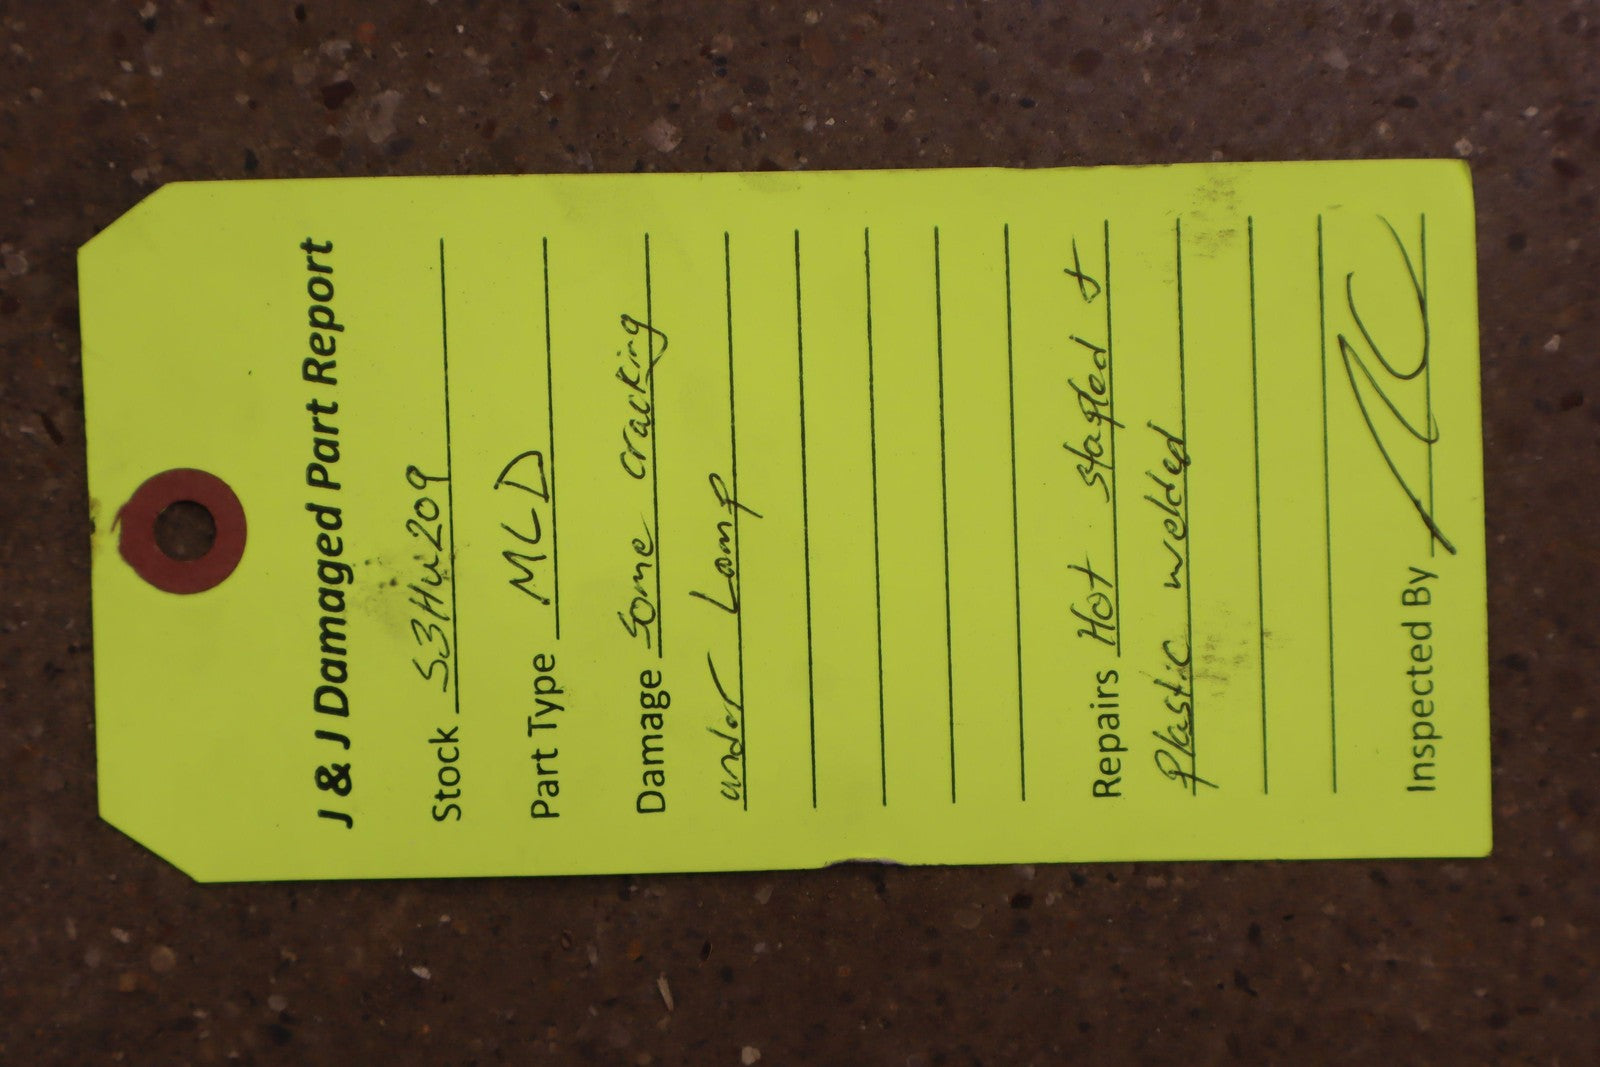 J & J Damaged Part Report
Stock S3Hu209
Part Type MLD
Damage Some cracking
under Lamp
Repairs Hot stapled +
Plastic welded
Inspected By